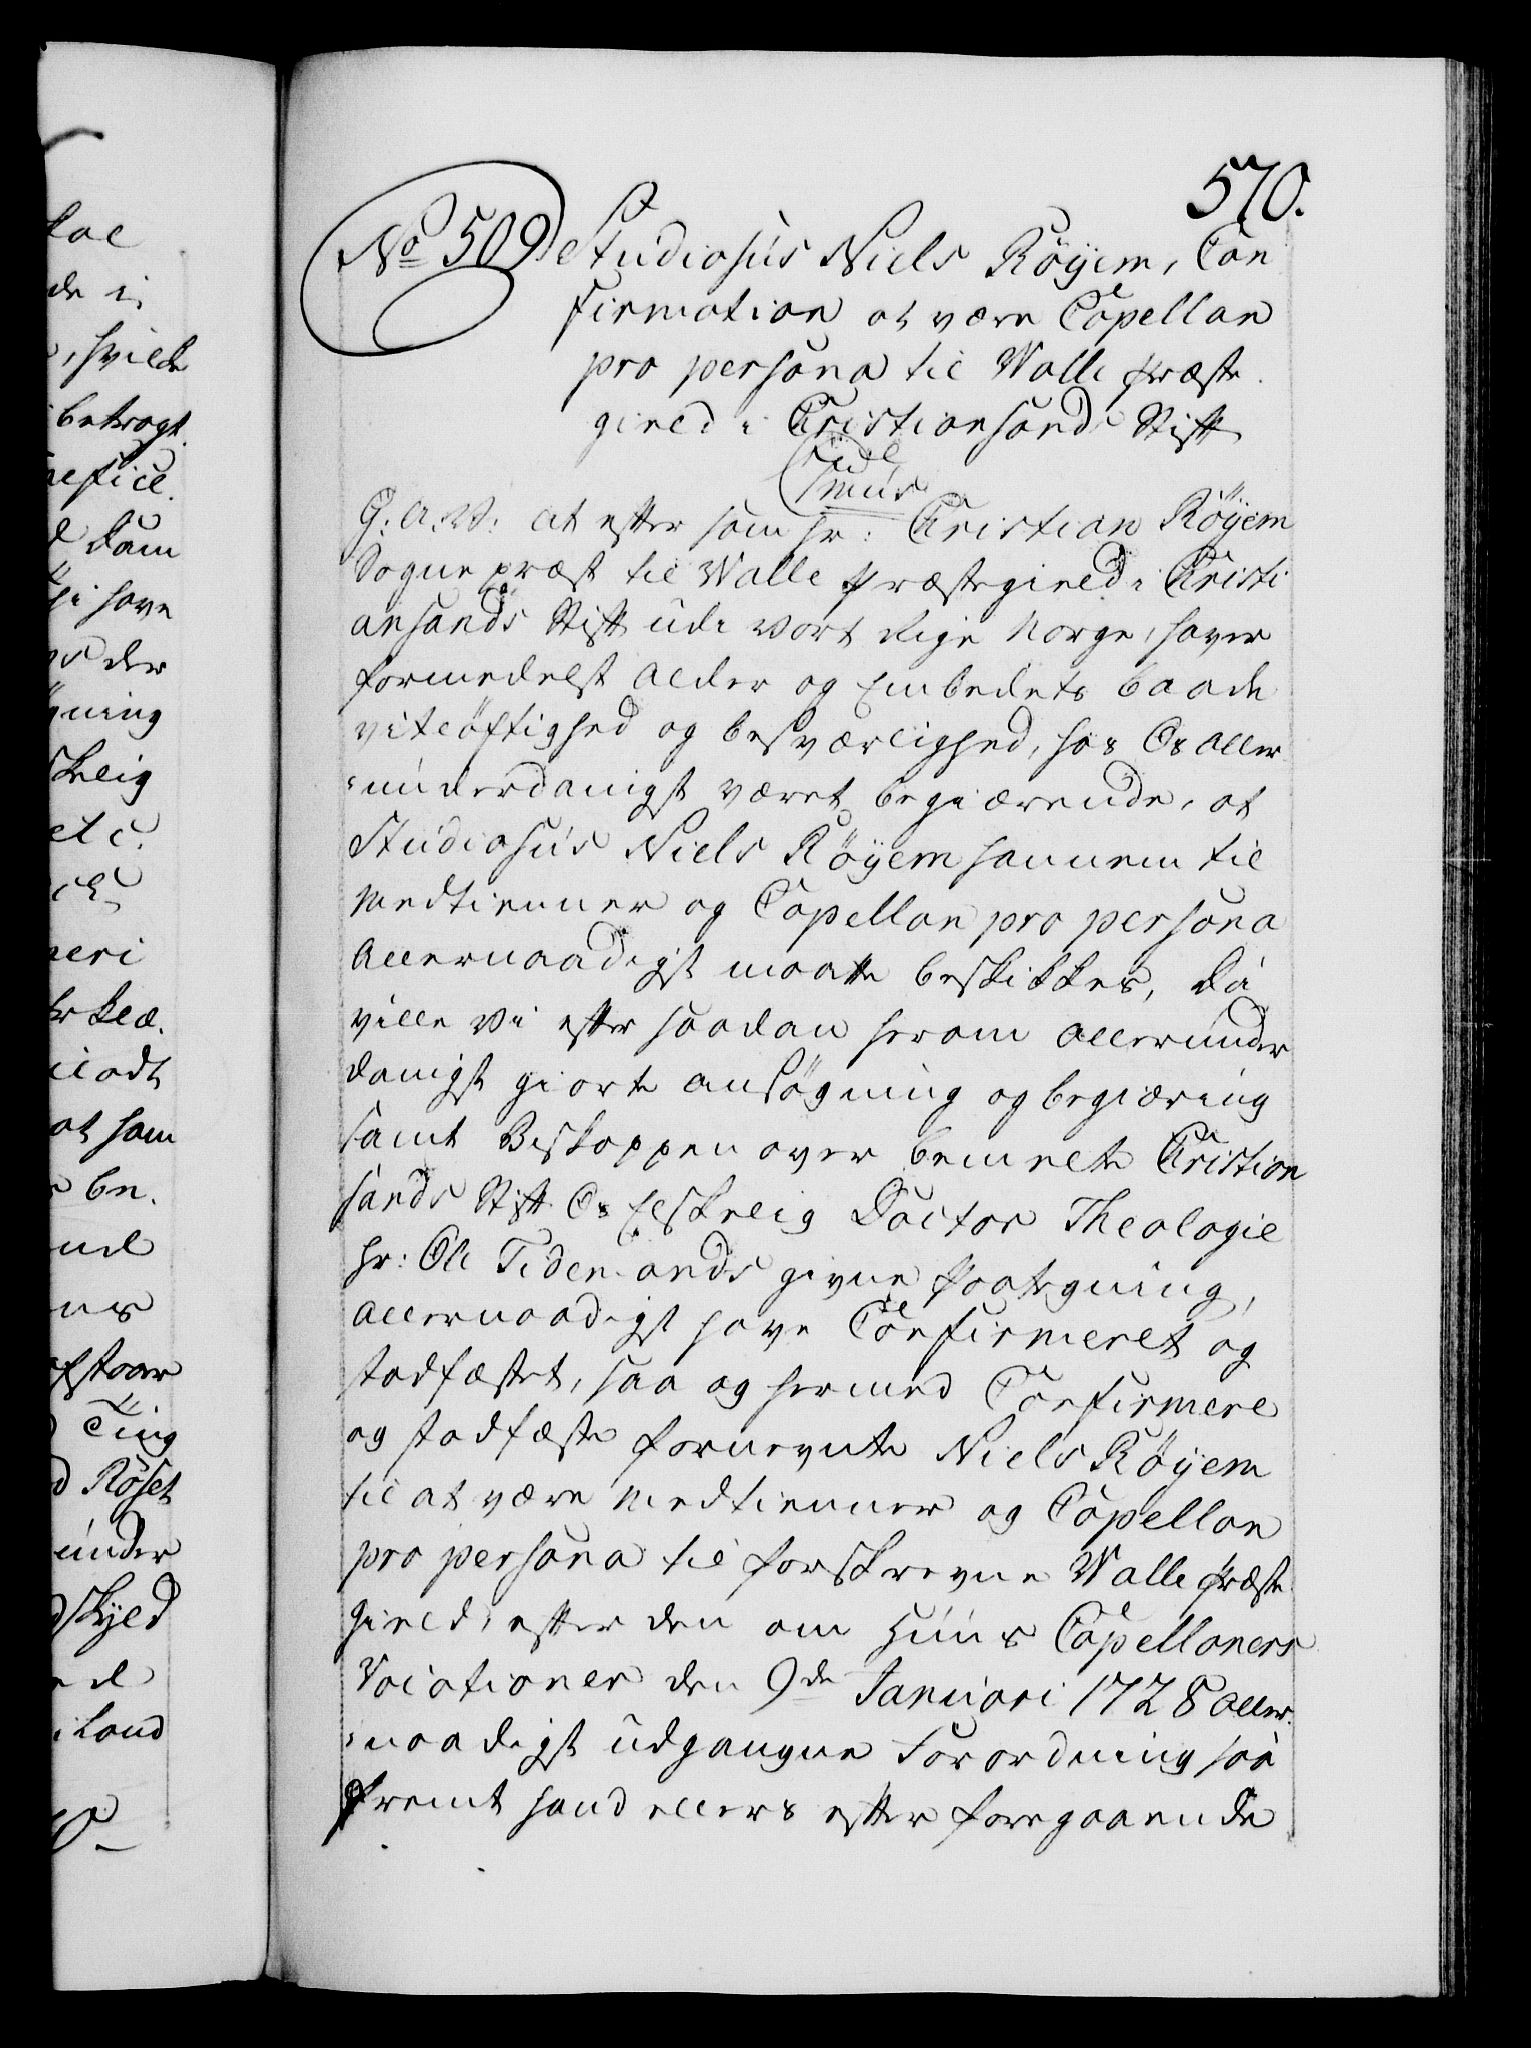 570.
No 509
Studiosus Niels Röyem, Con
firmation at være Capellan
pro persona til Walle præste
gield i Christiansands Stift
G: A: W: at efter som hr: Christian Röyem
Sogne præst til Walle præstegield i Christi
ansands Stift udi Vort Rige Norge, haver
formedelst Alder og Embedets baade
vitløftighed og besværlighed, hos Os aller
underdanigst været begiærende, at
Studiosus Niels Röyem hannem til
Medtienner og Capellan pro persona
Allernaadigst maatte beskikkes, Da
ville Vi efter saadan herom allerunder
danigst giorte ansøgning og begiæring
samt Biskoppen over bemelte Christian
sands Stift Os Elskelig Doctor Theologie
hr: Ole Tidemands givne paategning,
allernaadigst have Confirmeret og
stadfæstet, saa og hermed Confirmere
og stadfæste fornevnte Niels Röyem
til at være Medtienner og Capellan
pro persona til forskrevne Walle præste
gield, efter den om Huus Capellaners
Vocationer den 9de Januari 1728 aller
naadigst udgangne Forordning saa
fremt hand ellers efter foregaaende
lae
de i
, hvilde
betragt
nefice
d Dom
have
der
ning
etc.
meri
som
be.
Ting
Røset
under
Land